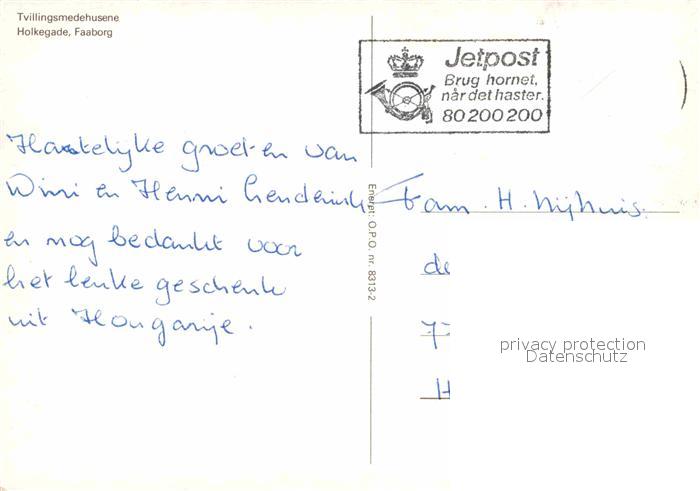 Tvillingsmedehusene
Holkegade, Faaborg
Jetpost
Brug hornet,
når det haster.
80 200 200
Hartelijke groeten van
Wini en Henni
en nog bedankt voor
het leuke geschenk
uit Hongarije.
Eneret: O.P.O. nr. 8313-2
Fam. H. Nijhuis.
de
7
H
privacy protection
Datenschutz